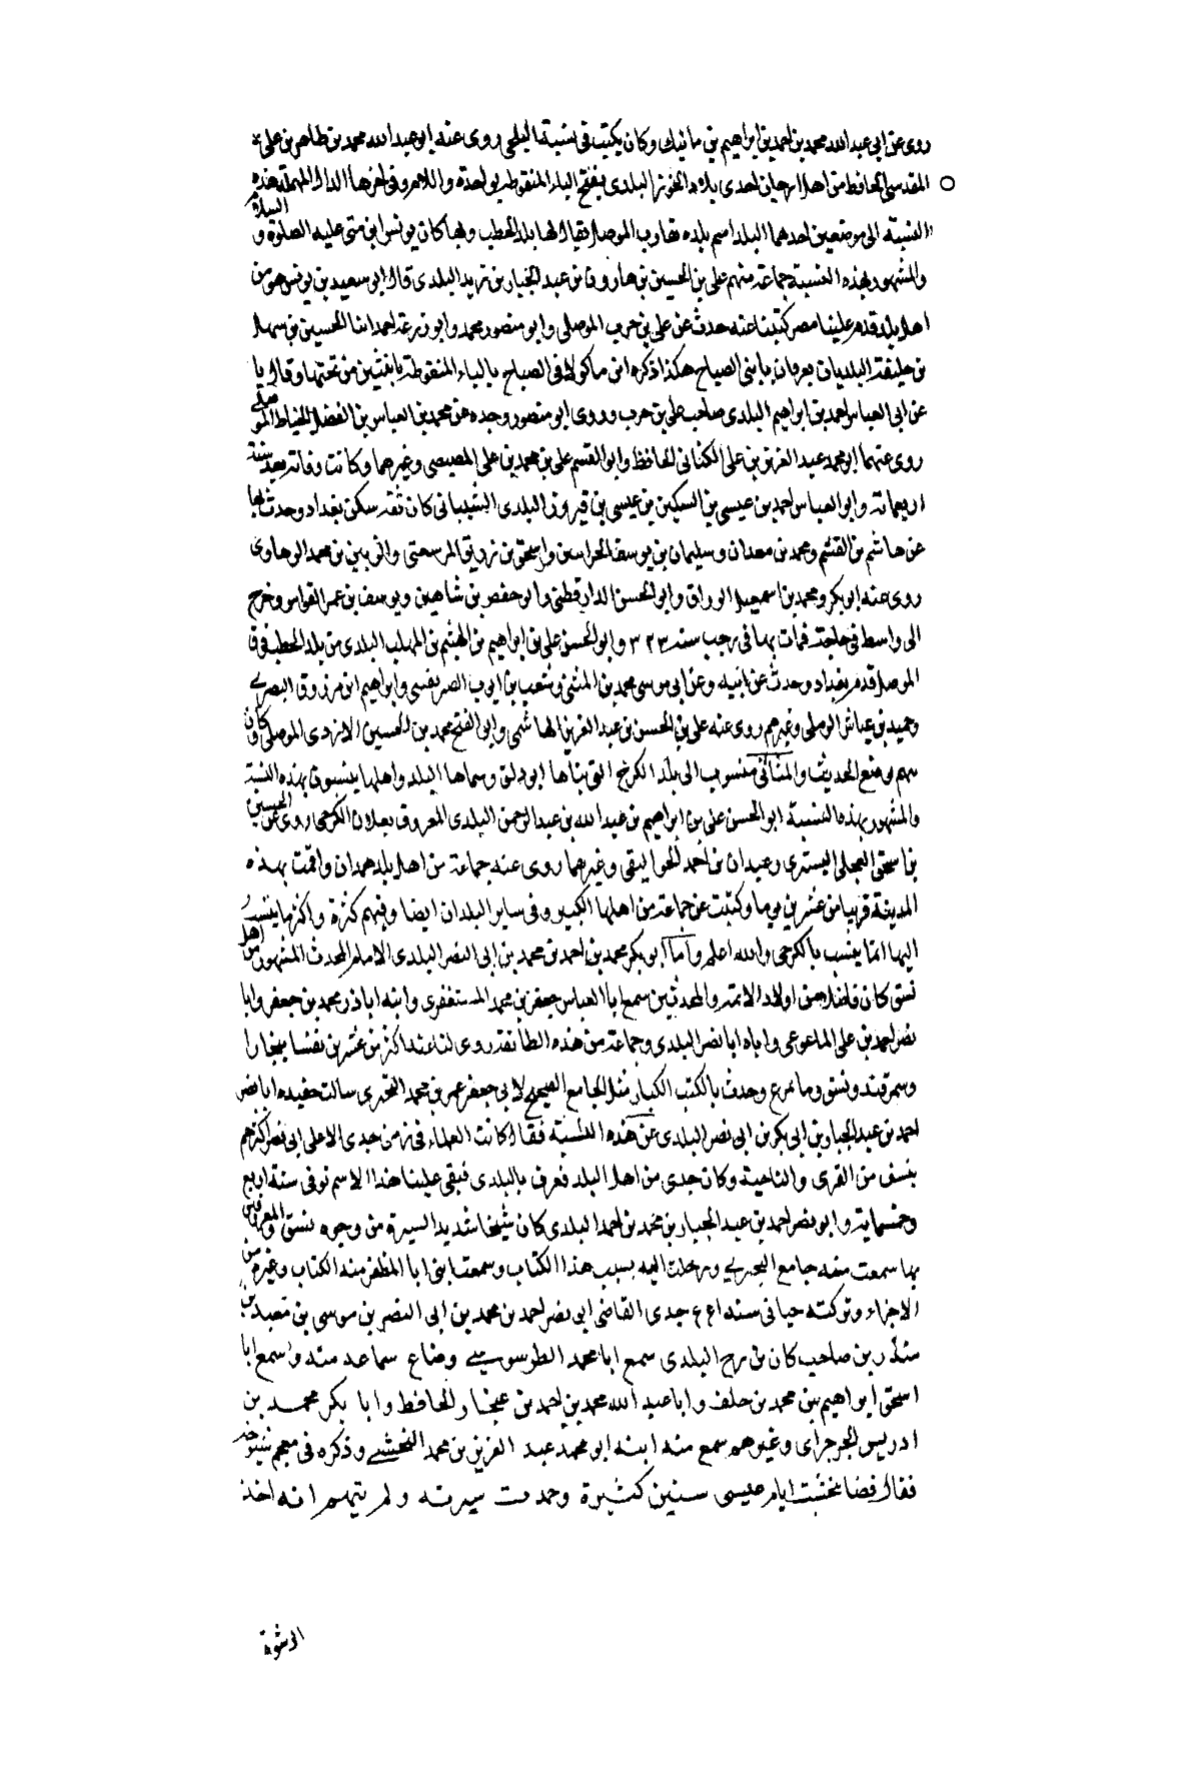 روى عن ابى عبد الله محمد بن احمد بن ابراهيم بن ما ئيك وكان يكتب فى نسبة البلحى روى عنه ابو عبد الله محمد بن طاهر بن على
المقدسى الحافظ من اهل ارجان احدى بلاد الخوز البلدى بفتح الباء المنقوطة بواحدة واللام وفى اخرها الدال المهملة هذه
النسبة الى موضعين احدهما البلد اسم بلدة تقارب الموصل يقال لها بلد الحطب وبها كان يونس ابن متى عليه الصلوة و السلام
والمشهور بهذه النسبة جماعة منهم على بن الحسين بن هارون بن عبد الجبار بن يزيد البلدى قال ابو سعيد بن يونس هو من
اهل بلد قدم علينا مصر كتبنا عنه حدث عن على بن حرب الموصلى وابو منصور محمد وابو زرعة احمد ابنا الحسين بن سهل
بن خليفة البلديان يعرفان بابنى الصياح هكذا ذكره ابن ماكولا فى الصياح بالياء المنقوطة باثنتين من تحتها وقال
عن ابى العباس احمد بن ابراهيم البلدى صاحب على بن حرب وروى ابو منصور وحده عن محمد بن العباس بن الفضل الخياط الموصلى
روى عنهما ابو محمد عبد العزيز بن على الكنانى الحافظ وابو القسم على بن محمد بن على المصيصى وغيرهما وكانت وفاته بعد سنة
اربعمائة وابو العباس احمد بن عيسى بن السكين بن عيسى بن فيروز البلدى الشيبانى كان ثقة سكن بغداد وحدث بها
عن هاشم بن القسم ومحمد بن معدان وسليمان بن يوسف الحرانيين واسحق بن زريق الرسعنى والزبير بن محمد الرهاوى
روى عنه ابو بكر ومحمد بن اسمعيل الوراق وابو الحسن الدارقطنى وابو حفص بن شاهين ويوسف بن عمر القواس وخرج
الى واسط فى حاجة فمات بها فى رجب سنه ٣٢٣ وابو الحسن على بن ابراهيم بن الهيثم بن المهلب البلدى من بلد الحطب فوق
الموصل قدم بغداد وحدث عن ابيه وعن ابى موسى محمد بن المثنى وشعيب بن ايوب الصريفينى وابراهيم ابن مرزوق البصرى
وحميد بن عياش الرملى وغيرهم روى عنه على بن الحسن بن عبد العزيز الهاشمى وابو الفتح محمد بن الحسين الازدى الموصلى وكان
يتهم بوضع الحديث والثانى منسوب الى بلد الكرج التى بناها ابو دلف وسماها البلد واهلها ينسبون بهذه النسبة
والمشهور بهذه النسبة ابو الحسن على بن ابراهيم بن عبد الله بن عبد الرحمن البلدى المعروف بعلان الكرجى روى عن الحسين
بن اسحق العجلى التسترى وعبدان بن احمد الجواليقى وغيرهما روى عنه جماعة من اهل بلد همدان واقمت بهذه
المدينة قريبا من عشرين يوما وكتبت عن جماعة من اهلها الكبير وفى ساير البلدان ايضا وفيهم كثرة واكثر ما ينسب
اليها انما ينسب بالكرجى والله اعلم واما ابو بكر محمد بن احمد بن محمد بن ابى النصر البلدى الامام المحدث المشهور من اهل
نسف كان فاضلا من اولاد الائمة والمحدثين سمع ابا العباس جعفر بن محمد المستغفرى وابنه ابا ذر محمد بن جعفر وابا
نصر احمد بن على المايمرغى واباه ابا نصر البلدى وجماعة من هذه الطائفة روى لنا عنه اكثر من عشرين نفسا ببخارا
وسمرقند ونسف ومايمرغ وحدث بالكتب الكبار مثل الجامع الصحيح لابى جعفر عمر بن محمد البحيرى سالت حفيده ابا نصر
احمد بن عبد الجبار بن ابى بكر بن ابى نصر البلدى عن هذه النسبة فقال كانت العلماء فى زمن جدى الاعلى ابى نصر اكثرهم
بنسف من القرى والناحية وكان جدى من اهل البلد فعرف بالبلدى فبقى علينا هذا الاسم توفى سنة اربع
وخمسماية وابو نصر احمد بن عبد الجبار بن محمد بن احمد البلدى كان شيخا شديد السيرة من وجوه نسف والمعروفين
بها سمعت منه جامع البحيرى ورحلت اليه بسبب هذا الكتاب وسمعت ابنى ابا المظفر منه الكتاب وغيره من
الاجزاء وتركته حيا فى سنه جدى القاضى ابى نصر احمد بن محمد بن ابى النصر بن موسى بن سعيد بن
منذر بن صاحب كان البلدى سمع ابا محمد الطرسوسى وضاع سماعه منه واسمع ابا
اسحق ابراهيم بن محمد بن خلف وابا عبد الله محمد بن احمد بن غنجار الحافظ وابا بكر محمد بن
ادريس الجرجراى وغيرهم سمع منه ابنه ابو محمد عبد العزيز بن محمد النخشبى وذكره فى معجم شيوخه
فقال قضا بنخشب ايام عيسى سنين كثيرة وحمدت سيرته ولم يتهم انه اخذ
الرشوة